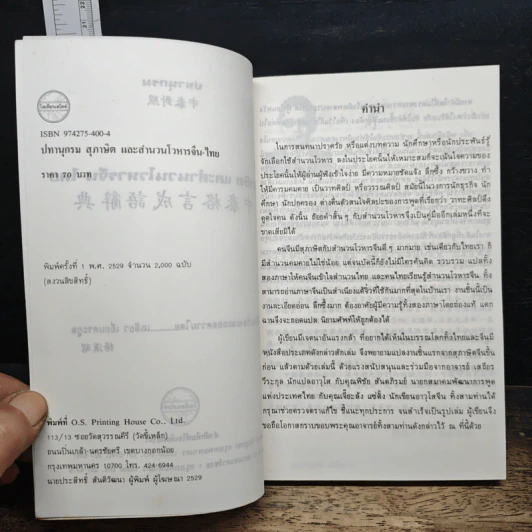 ISBN 974275-400-4
ปทานุกรม สุภาษิต และสำนวนโวหารจีน-ไทย
ราคา 70 บาท
พิมพ์ครั้งที่ 1 พ.ศ. 2529 จำนวน 2,000 ฉบับ
(สงวนลิขสิทธิ์)
พิมพ์ที่ O.S. Printing House Co., Ltd.
113/13 ซอยวัดสุวรรณคีรี (วัดขี้เหล็ก)
ถนนปิ่นเกล้า-นครชัยศรี เขตบางกอกน้อย
กรุงเทพมหานคร 10700 โทร. 424-6944
นายประสิทธิ์ สันติวัฒนา ผู้พิมพ์ ผู้โฆษณา 2529
คำนำ
ในการสนทนาปราศรัย หรือแต่งบทความ นักศึกษาหรือนักประพันธ์รู้
จักเลือกใช้สำนวนโวหาร ลงในประโยคนั้นให้เหมาะสมก็จะเน้นใจความของ
ประโยคนั้นให้ผู้อ่านผู้ฟังเข้าใจง่าย มีความหมายชัดแจ้ง ลึกซึ้ง กว้างขวาง ทำ
ให้มีความคมคาย เป็นวาทศิลป์ หรือวรรณศิลป์ สมัยนี้ในวงการนักธุรกิจ นัก
ศึกษา นักปกครอง ต่างตื่นตัวสนใจศิลปะของการพูดที่เรียกว่า วาทะศิลป์ดึง
ดูดใจคน ดังนั้น ถ้อยคำสั้นๆ กับสำนวนโวหารจึงเป็นคู่มืออีกเล่มหนึ่งที่จะ
ขาดเสียมิได้
คนจีนมีสุภาษิตกับสำนวนโวหารจีนดี ๆ มากมาย เช่นเดียวกับไทยเรา ก็
มีสำนวนคมคายไม่ใช่น้อย แต่จนบัดนี้ก็ยังไม่มีใครค้นคิด รวบรวม แปลทั้ง
สองภาษาให้คนจีนเข้าใจสำนวนไทย และคนไทยเรียนรู้สำนวนโวหารจีน ทั้ง
สามารถอ่านภาษาจีนเป็นสำเนียงแต้จิ๋วที่ใช้กันมากที่สุดในบ้านเรา งานชิ้นนี้เป็น
งานละเอียดอ่อน ลึกซึ้งมาก ต้องอาศัยผู้มีความรู้ทั้งสองภาษาโดยถ่องแท้ แตก
ฉานจึงจะยอดแปล นิยามศัพท์ให้ถูกต้องได้
ผู้เขียนมีเจตนาอันแรงกล้า ที่อยากได้เห็นในบรรณโลกทั้งไทยและจีนมี
หนังสือประเภทดังกล่าวสักเล่ม จึงพยายามแปลงานชิ้นแรกจากสุภาษิตจีนขึ้น
ก่อน แล้วตามด้วยเล่มนี้ ด้วยแรงสนับสนุนและร่วมมือจากอาจารย์ เสถียร
วีระกุล นักแปลอาวุโส กับคุณพิชัย สันตภิรมย์ นายกสมาคมพัฒนาการพูด
แห่งประเทศไทย กับคุณเจี๊ยะลั้ง แซ่ลิ้ง นักเขียนอาวุโสจีน ทั้งสามท่านได้
กรุณาช่วยตรวจตราแก้ไข ชี้แนะทุกประการ จนสำเร็จเป็นรูปเล่ม ผู้เขียนจึง
ขอถือโอกาสกราบขอบพระคุณอาจารย์ทั้งสามท่านดังกล่าวไว้ ณ ที่นี้ด้วย